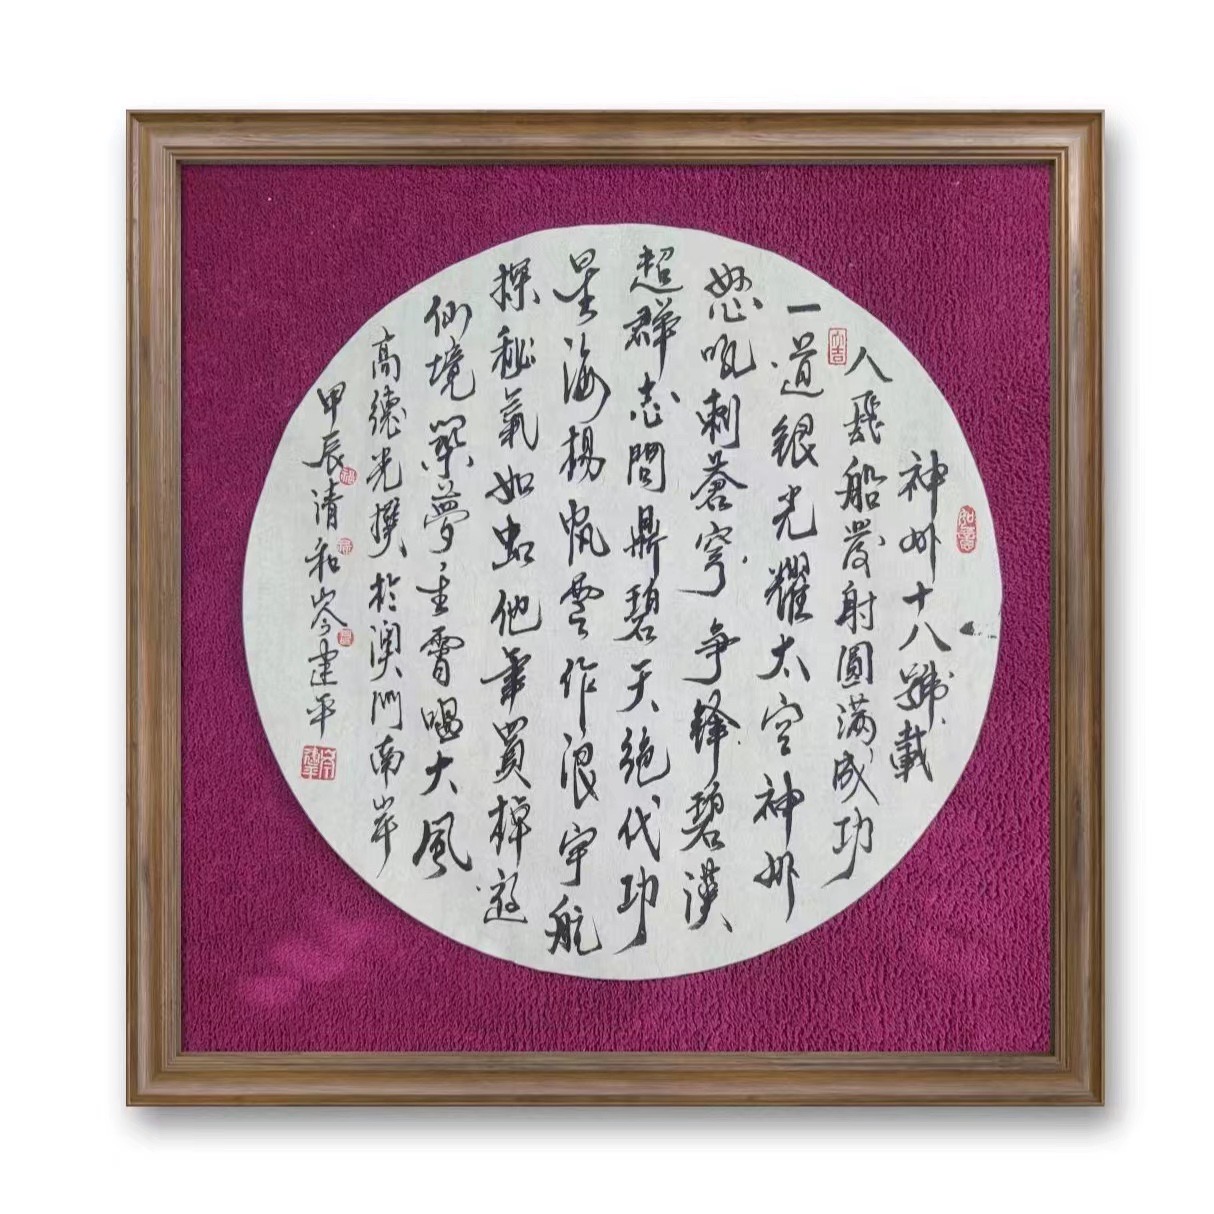 神州十八號載
人飛船發射圓滿成功
一道銀光耀太空神州
怒吼刺蒼穹爭鋒碧漢
超群志問鼎碧天絕代功
星海揚帆雲作浪宇航
探秘氣如虹他年買棹遊
仙境築夢重霄唱大風
高德光撰於澳門南岸
甲辰清和岑建平